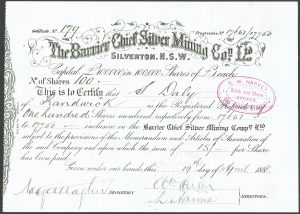 Certificate No 179 Progressive No 17661/17760
The Barrier Chief Silver Mining Coy. Ld.
SILVERTON, N.S.W.
Capital £100,000 in 100,000 Shares of £1 each
No of Shares 100.
This is to Certify that S Daly
of Randwick is the Registered Proprietor of
One Hundred Shares numbered respectively from 17661
to 17760 inclusive in the Barrier Chief Silver Mining Compy. Ld.
subject to the provisions of the Memorandum & Articles of Association of
the said Company and upon which the sum of 15/- per Share
has been paid.
Given under our hands this 19th day of April 188